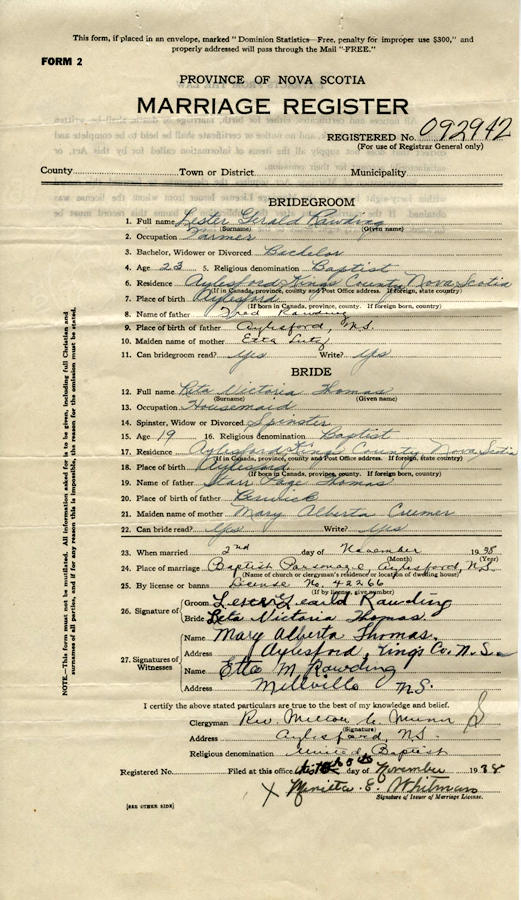 This form, if placed in an envelope, marked "Dominion Statistics—Free, penalty for improper use $300," and
properly addressed will pass through the Mail "FREE."
FORM 2
PROVINCE OF NOVA SCOTIA
MARRIAGE REGISTER
REGISTERED No. 092942
(For use of Registrar General only)
County Town or District Municipality
BRIDEGROOM
1. Full name Lester Gerald Rawding
(Surname) (Given name)
2. Occupation Farmer
3. Bachelor, Widower or Divorced Bachelor
4. Age 23 5. Religious denomination Baptist
6. Residence Aylesford Kings County Nova Scotia
(If in Canada, province, county and Post Office address. If foreign, state country)
7. Place of birth Aylesford
(If born in Canada, province, county. If foreign born, country)
8. Name of father Fred Rawding
9. Place of birth of father Aylesford, N.S.
10. Maiden name of mother Etta Lutz
11. Can bridegroom read? Yes Write? Yes
BRIDE
12. Full name Leta Victoria Thomas
(Surname) (Given name)
13. Occupation Housemaid
14. Spinster, Widow or Divorced Spinster
15. Age 19 16. Religious denomination Baptist
17. Residence Aylesford Kings County Nova Scotia
(If in Canada, province, county and Post Office address. If foreign, state country)
18. Place of birth Aylesford
(If born in Canada, province, county. If foreign born, country)
19. Name of father Starr Page Thomas
20. Place of birth of father Berwick
21. Maiden name of mother Mary Alberta
22. Can bride read? Yes Write? Yes
23. When married 2nd day of November 1938
(Month) (Year)
24. Place of marriage Baptist Parsonage, Aylesford, N.S.
(Name of church or clergyman's residence or location of dwelling house)
25. By license or banns License No. 42266
(If by license, give number)
26. Signature of
Groom Lester Gerald Rawding
Bride Leta Victoria Thomas.
27. Signatures of Witnesses
Name Mary Alberta Thomas.
Address Aylesford, Kings Co. N.S.
Name Etta M Rawding
Address Millville N.S.
I certify the above stated particulars are true to the best of my knowledge and belief.
Clergyman Rev. Milton
(Signature)
Address Aylesford, N.S.
Religious denomination United Baptist
Registered No. Filed at this office day of November 1938
X E. Whitman
Signature of Issuer of Marriage License.
[SEE OTHER SIDE]
NOTE—This form must not be mutilated. All information asked for is to be given, including full Christian and
surnames of all parties, and if for any reason this is impossible, the reason for the omission must be stated.